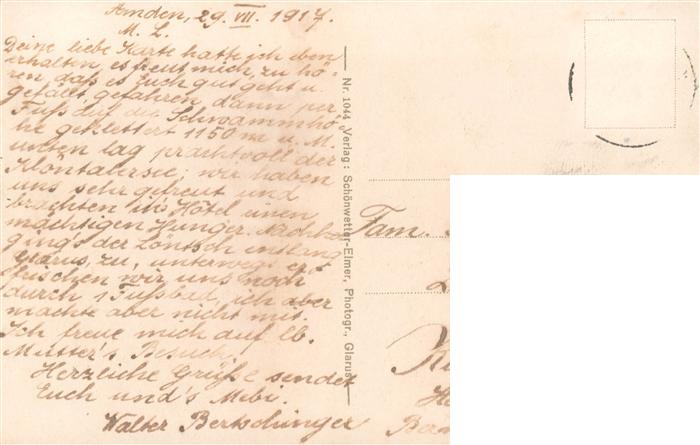 Amden, 29. VII. 1917.
M. L.
Deine liebe Karte hatte ich eben
erhalten, es freut mich, zu hö-
ren, daß es Euch gut geht u.
gefällt. gefahren, dann per
Fuß auf die Schwammhö-
he geklettert 1150 m ü. M.
unten lag prachtvoll der
Klöntalersee; wir haben
uns sehr gefreut und
brachten ins Hôtel einen
mächtigen Hunger. Nachher
gings der Löntsch entlang
Glarus zu, unterwegs er-
frischen wir uns noch
durch 1 Fußbad, ich aber
machte aber nicht mit.
Ich freue mich auf lb.
Mutter's Besuch.
Herzliche Grüße sendet
Euch und's Mebi.
Walter Bertschinger
Nr. 1044 Verlag: Schönwetter-Elmer, Photogr., Glarus
Fam.